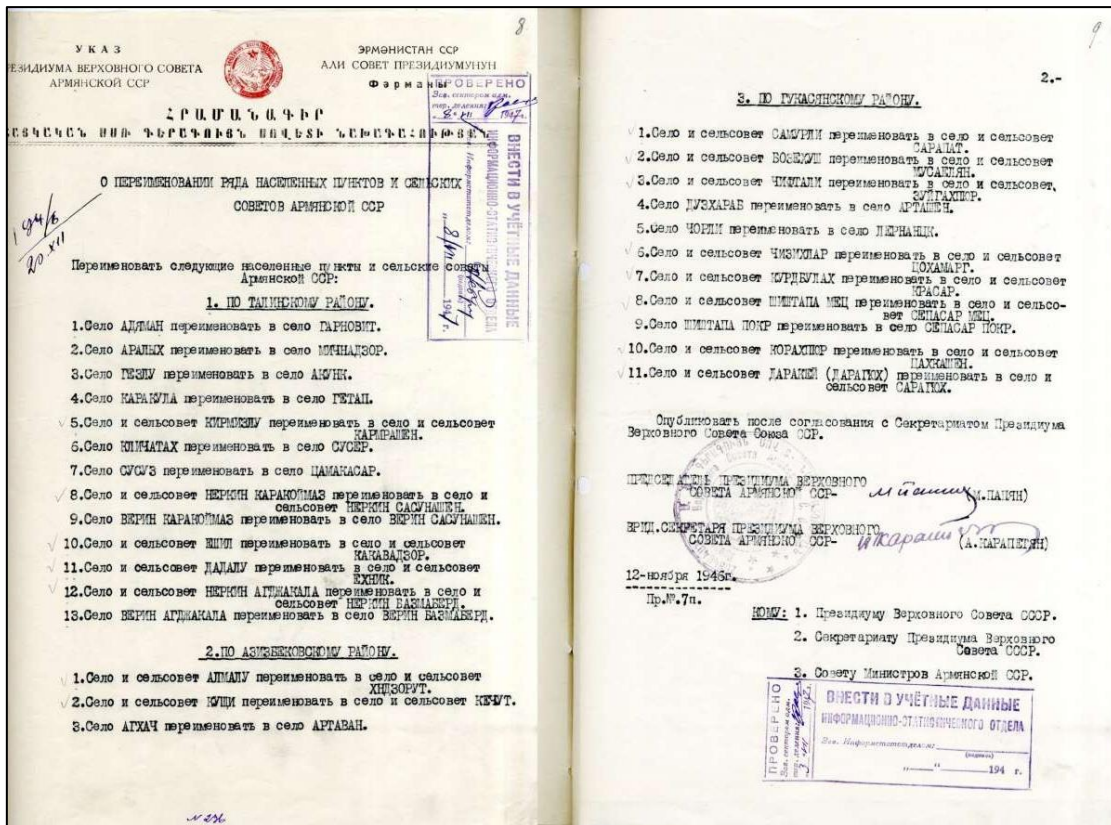 8
УКАЗ
ПРЕЗИДИУМА ВЕРХОВНОГО СОВЕТА
АРМЯНСКОЙ ССР
ЭРМӘНИСТАН ССР
АЛИ СОВЕТ ПРЕЗИДИУМУНУН
Фәрманы
ՀՐԱՄԱՆԱԳԻՐ
ՀԱՅԿԱԿԱՆ ՍՍՌ ԳԵՐԱԳՈՒՅՆ ՍՈՎԵՏԻ ՆԱԽԱԳԱՀՈՒԹՅԱՆ
ПРОВЕРЕНО
ВНЕСТИ В УЧЁТНЫЕ ДАННЫЕ
О ПЕРЕИМЕНОВАНИИ РЯДА НАСЕЛЕННЫХ ПУНКТОВ И СЕЛЬСКИХ
СОВЕТОВ АРМЯНСКОЙ ССР
20.XII
Переименовать следующие населенные пункты и сельские советы
Армянской ССР:
1. ПО ТАЛИНСКОМУ РАЙОНУ.
1.Село АДЯМАН переименовать в село ГАРНОВИТ.
2.Село АРАЛЫХ переименовать в село МИЧНАДЗОР.
3.Село ГЕЗЛУ переименовать в село АКУНК.
4.Село КАРАКУЛА переименовать в село ГЕТАП.
5.Село и сельсовет КИРМИЗЛУ переименовать в село и сельсовет
КАРМРАШЕН.
6.Село КЛИЧАТАХ переименовать в село СУСЕР.
7.Село СУСУЗ переименовать в село ЦАМАКАСАР.
8.Село и сельсовет НЕРКИН КАРАКОЙМАЗ переименовать в село и
сельсовет НЕРКИН САСУНАШЕН.
9.Село ВЕРИН КАРАКОЙМАЗ переименовать в село ВЕРИН САСУНАШЕН.
10.Село и сельсовет ЕШИЛ переименовать в село и сельсовет
КАКАВАДЗОР.
11.Село и сельсовет ДАДАЛУ переименовать в село и сельсовет
ЕХНИК.
12.Село и сельсовет НЕРКИН АГДЖАКАЛА переименовать в село и
сельсовет НЕРКИН БАЗМАБЕРД.
13.Село ВЕРИН АГДЖАКАЛА переименовать в село ВЕРИН БАЗМАБЕРД.
2.ПО АЗИЗБЕКОВСКОМУ РАЙОНУ.
1.Село и сельсовет АЛМАЛУ переименовать в село и сельсовет
ХНДЗОРУТ.
2.Село и сельсовет КУЩИ переименовать в село и сельсовет КЕЧУТ.
3.Село АГХАЧ переименовать в село АРТАВАН.
N 236
9
2.-
3. ПО ГУКАСЯНСКОМУ РАЙОНУ.
1.Село и сельсовет САМУРЛИ переименовать в село и сельсовет
САРАПАТ.
2.Село и сельсовет БОЗЕХУШ переименовать в село и сельсовет
МУСАЕЛЯН.
3.Село и сельсовет ЧИФТАЛИ переименовать в село и сельсовет,
ЗУЙГАХПЮР.
4.Село ДУЗХАРАБ переименовать в село АРТАШЕН.
5.Село ЧОРЛИ переименовать в село ЛЕРНАНЦК.
6.Село и сельсовет ЧИЗИХЛАР переименовать в село и сельсовет
ЦОХАМАРГ.
7.Село и сельсовет КУРДБУЛАХ переименовать в село и сельсовет
КРАСАР.
8.Село и сельсовет ШИШТАПА МЕЦ переименовать в село и сельсо-
вет СЕПАСАР МЕЦ.
9.Село ШИШТАПА ПОКР переименовать в село СЕПАСАР ПОКР.
10.Село и сельсовет КОРАХПЮР переименовать в село и сельсовет
ЦАХКАШЕН.
11.Село и сельсовет ДАРАКЕЙ (ДАРАГЮХ) переименовать в село и
сельсовет САРАГЮХ.
Опубликовать после согласования с Секретариатом Президиума
Верховного Совета Союза ССР.
ПРЕДСЕДАТЕЛЬ ПРЕЗИДИУМА ВЕРХОВНОГО
СОВЕТА АРМЯНСКОЙ ССР-
(М.ПАПЯН)
ВРИД.СЕКРЕТАРЯ ПРЕЗИДИУМА ВЕРХОВНОГО
СОВЕТА АРМЯНСКОЙ ССР-
(А.КАРАПЕТЯН)
12-ноября 1946г.
Пр.№.7п.
КОМУ: 1. Президиуму Верховного Совета СССР.
2. Секретариату Президиума Верховного
Совета СССР.
3. Совету Министров Армянской ССР.
ПРОВЕРЕНО
ВНЕСТИ В УЧЁТНЫЕ ДАННЫЕ
ИНФОРМАЦИОННО-СТАТИСТИЧЕСКОГО ОТДЕЛА
Зав. Информстатотделом:
(подпись)
„ “ 194 г.